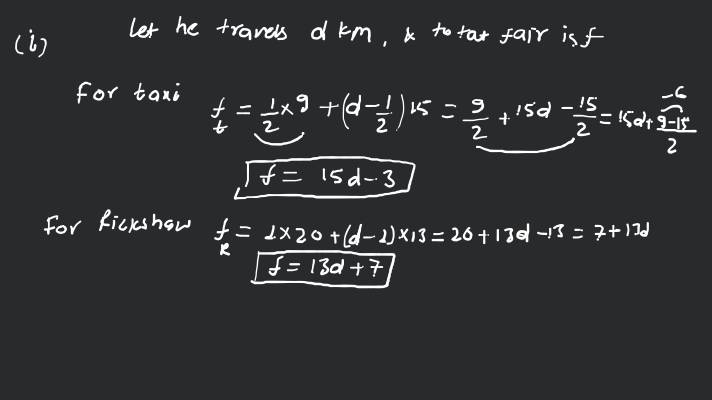 (i) Let he travels d km, & total fair is f
For taxi f_t = 1/2 × 9 + (d - 1/2) 15 = 9/2 + 15d - 15/2 = 15d + (9-15)/2 -6
f = 15d - 3
For Rickshaw f_R = 1×20 + (d-1)×13 = 20 + 13d - 13 = 7 + 13d
f = 13d + 7